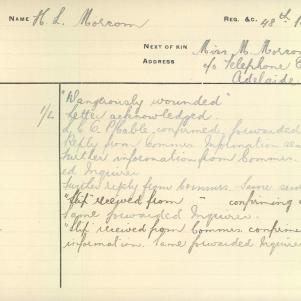 NAME H. L. Morcom REG. &C. 48th
NEXT OF KIN Miss M. Morcom
ADDRESS c/o Telephone
Adelaide
1/L "Dangerously wounded"
Letter acknowledged.
confirmed, forwarded
Reply from Commrs. Information
Further information from Commrs.
ed Inquirer
Further reply from Commrs. Same
"Slip" received from " confirming
Same forwarded Inquirer.
"Slip" received from Commrs confirm
information. Same forwarded Inquirer